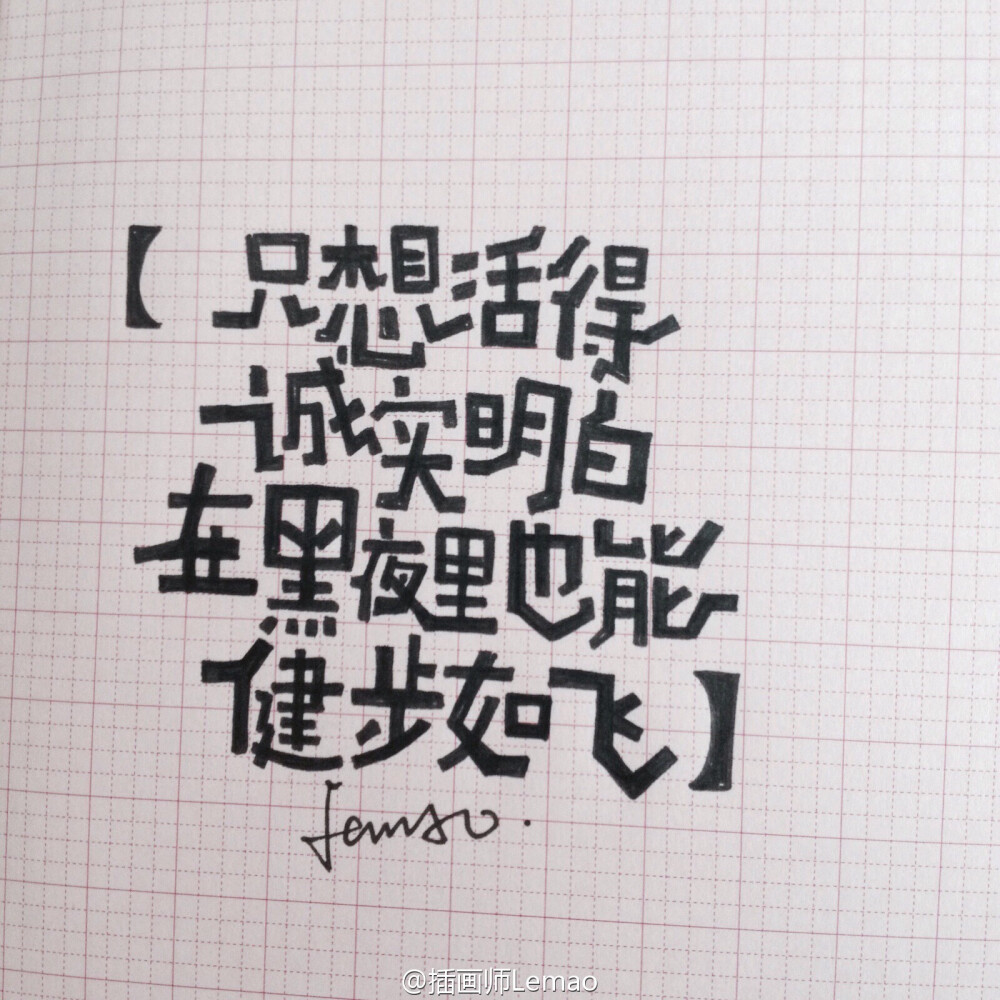 【只想活得
诚实明白
在黑夜里也能
健步如飞】
Lemao.
@插画师Lemao